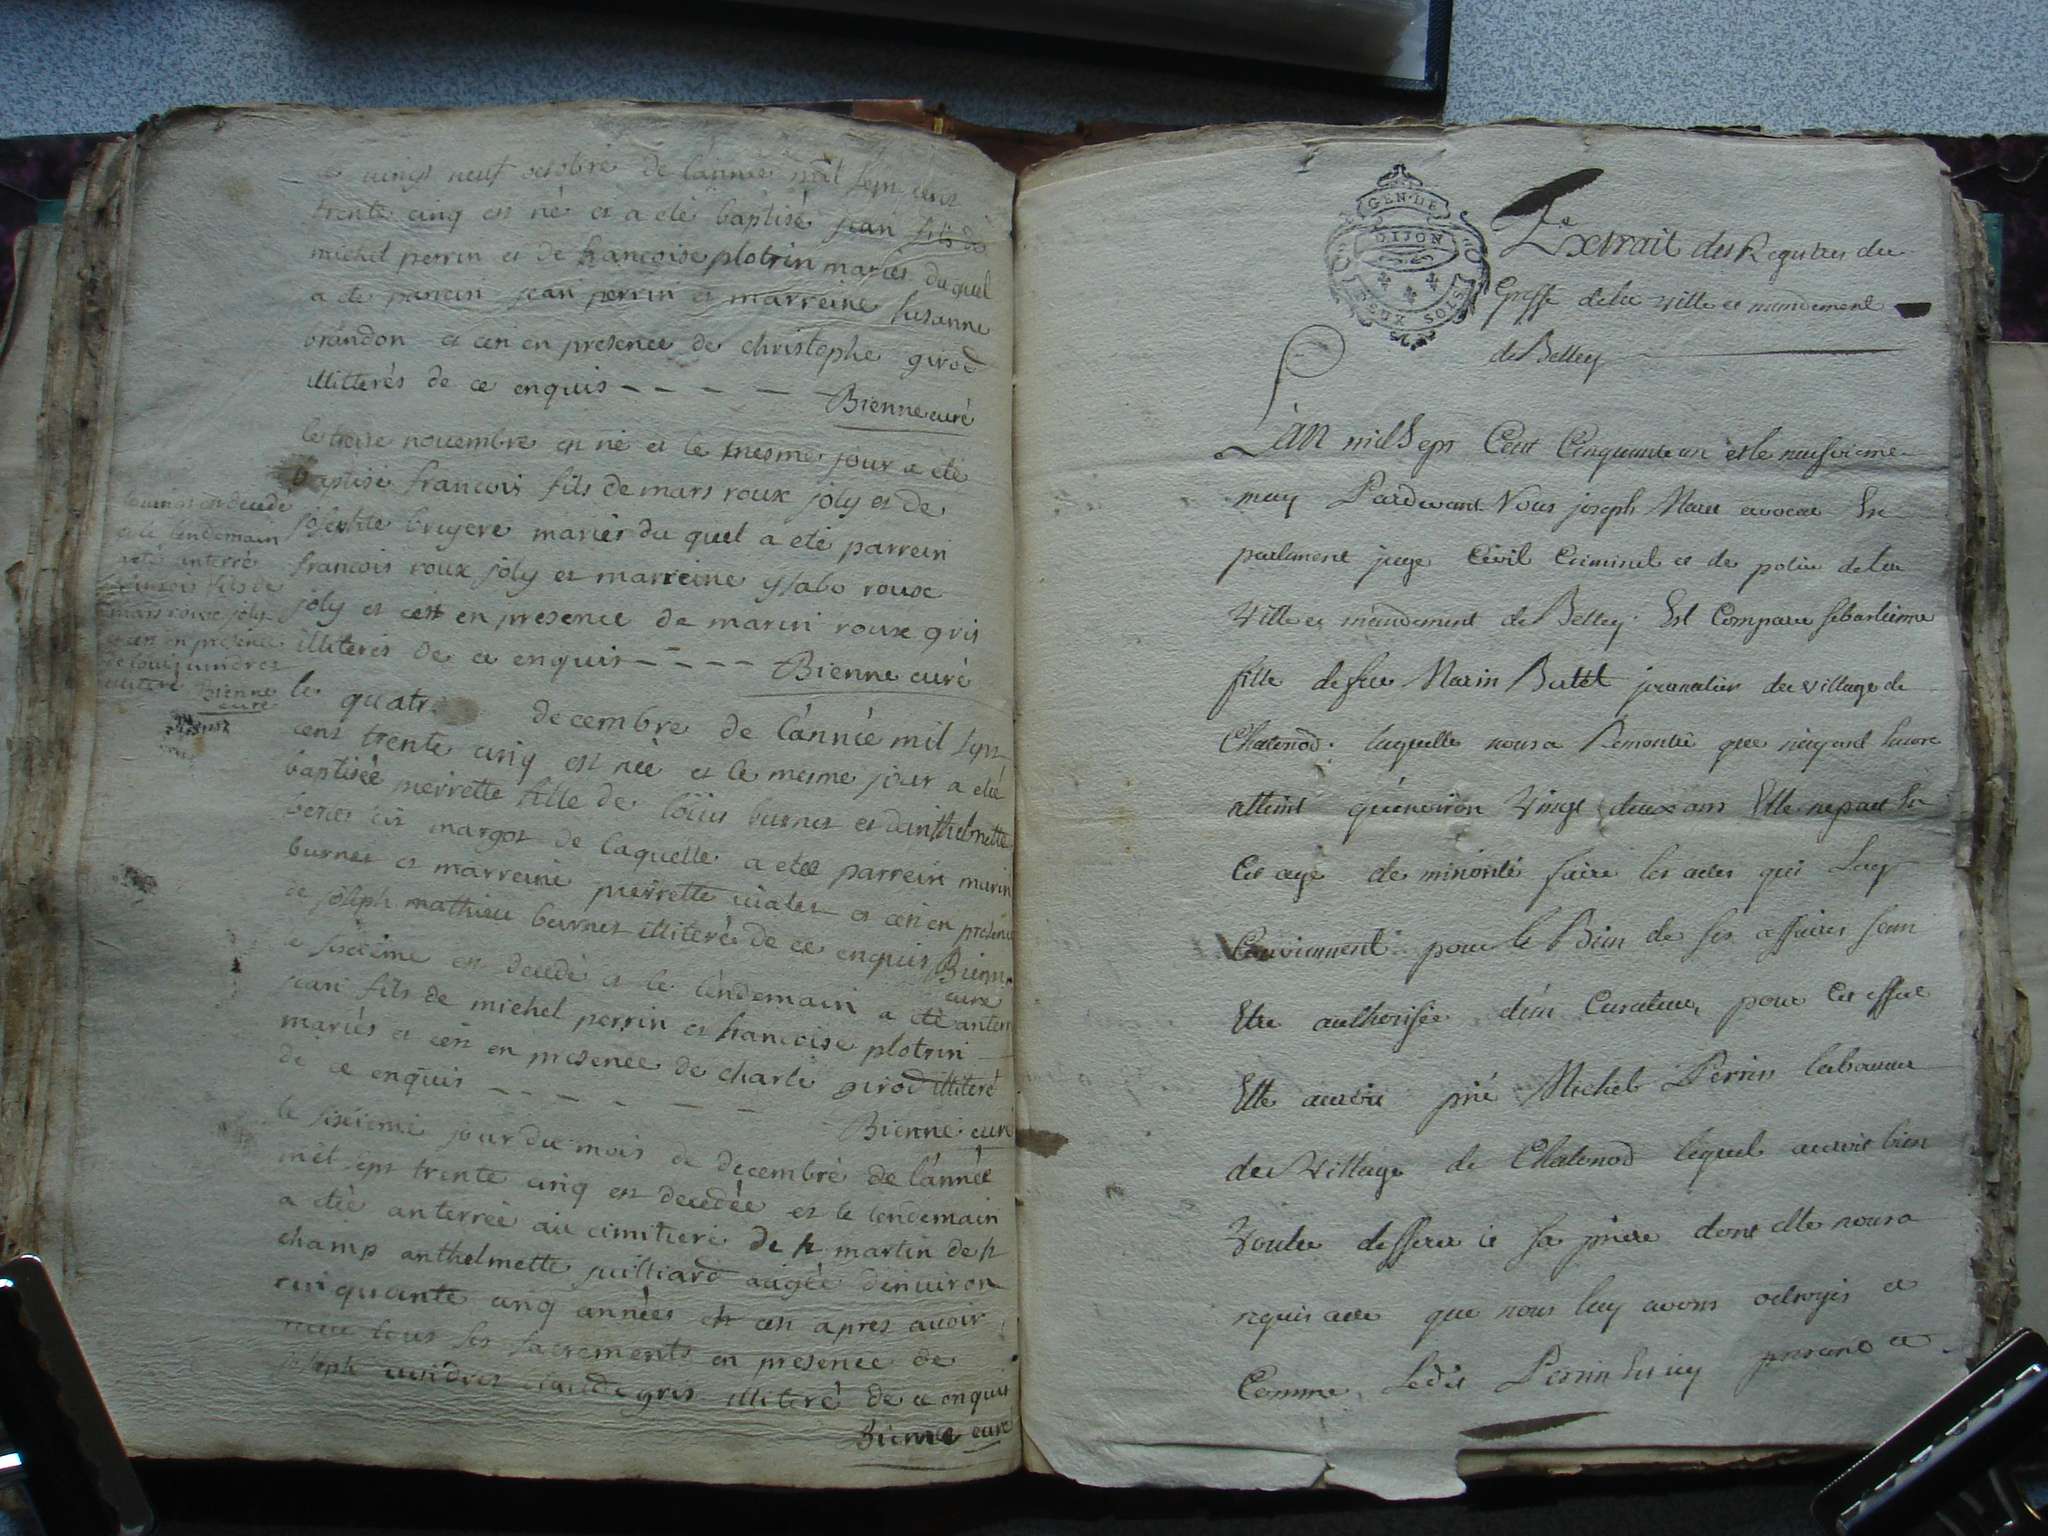 vingt neuf octobre de l'année mil sept cent
trente cinq est né et a eté baptisé jean fils de
michel perrin et de francoise plotrin mariés duquel
a eté parrein jean perrin et marreine susanne
brandon et cen en presence de christophe girod
illitterés de ce enquis
Bienne curé
le treise novembre est né et le mesme jour a eté
baptisé francois fils de mars roux joly et de
bruyere mariés du quel a eté parrein
francois roux joly et marreine ysabo roux
joly et cest en presence de marin roux gris
illiterés de ce enquis
Bienne curé
est decedé
et le lendemain
a eté anterré
francois fils de
mars roux joly
et cen en presence
illiteré Bienne
curé
le quatr decembre de l'année mil sept
cent trente cinq est née et le mesme jour a eté
baptisée pierrette fille de louis burnet et d'anthelmette
margot de laquelle a eté parrein marin
burnet et marreine pierrette vialet et cen en presence
de joseph mathieu burnet illiteré de ce enquis Bienne
curé
le sixième est decedé et le lendemain a eté anterré
jean fils de michel perrin et francoise plotrin
mariés et cen en presence de charle girod illiteré
de ce enquis
Bienne curé
le sixieme jour du mois de decembre de l'année
mil sept trente cinq est decedée et le lendemain
a etée anterrée au cimitiere de st martin de st
champ anthelmette juilliard aagée d'environ
cinquante cinq années et cen apres avoir
receu tous ses sacrements en presence de
joseph gris illiteré de ce enquis
Bienne curé
GEN · DE
DIJON
DEUX SOLS
Extrait des Registres du
Greffe de la ville et mandement
de Belley
L'an mil sept Cent Cinquante un et le neufvieme
may Pardevant Nous joseph Maret avocat En
parlement juge Civil Criminel et de police de la
Ville et mandement de Belley Est Comparu sebastienne
fille de feu Marin Butet journalier du village de
Chatenod laquelle nous a Remontré que n'ayant Encore
atteint qu'environ Vingt deux ans Elle ne peut En
Cet age de minorité faire les actes qui Luy
Conviennent pour le Bien de ses affaires sans
Etre authorisée d'un Curateur, pour Cet effet
Elle auroit prié Michel Perrin laboureur
du Village de Chatenod lequel auroit bien
Voulu defferer à sa priere dont elle nous a
requis acte que nous luy avons octroyés et
Comme Ledit Perrin Est icy present et